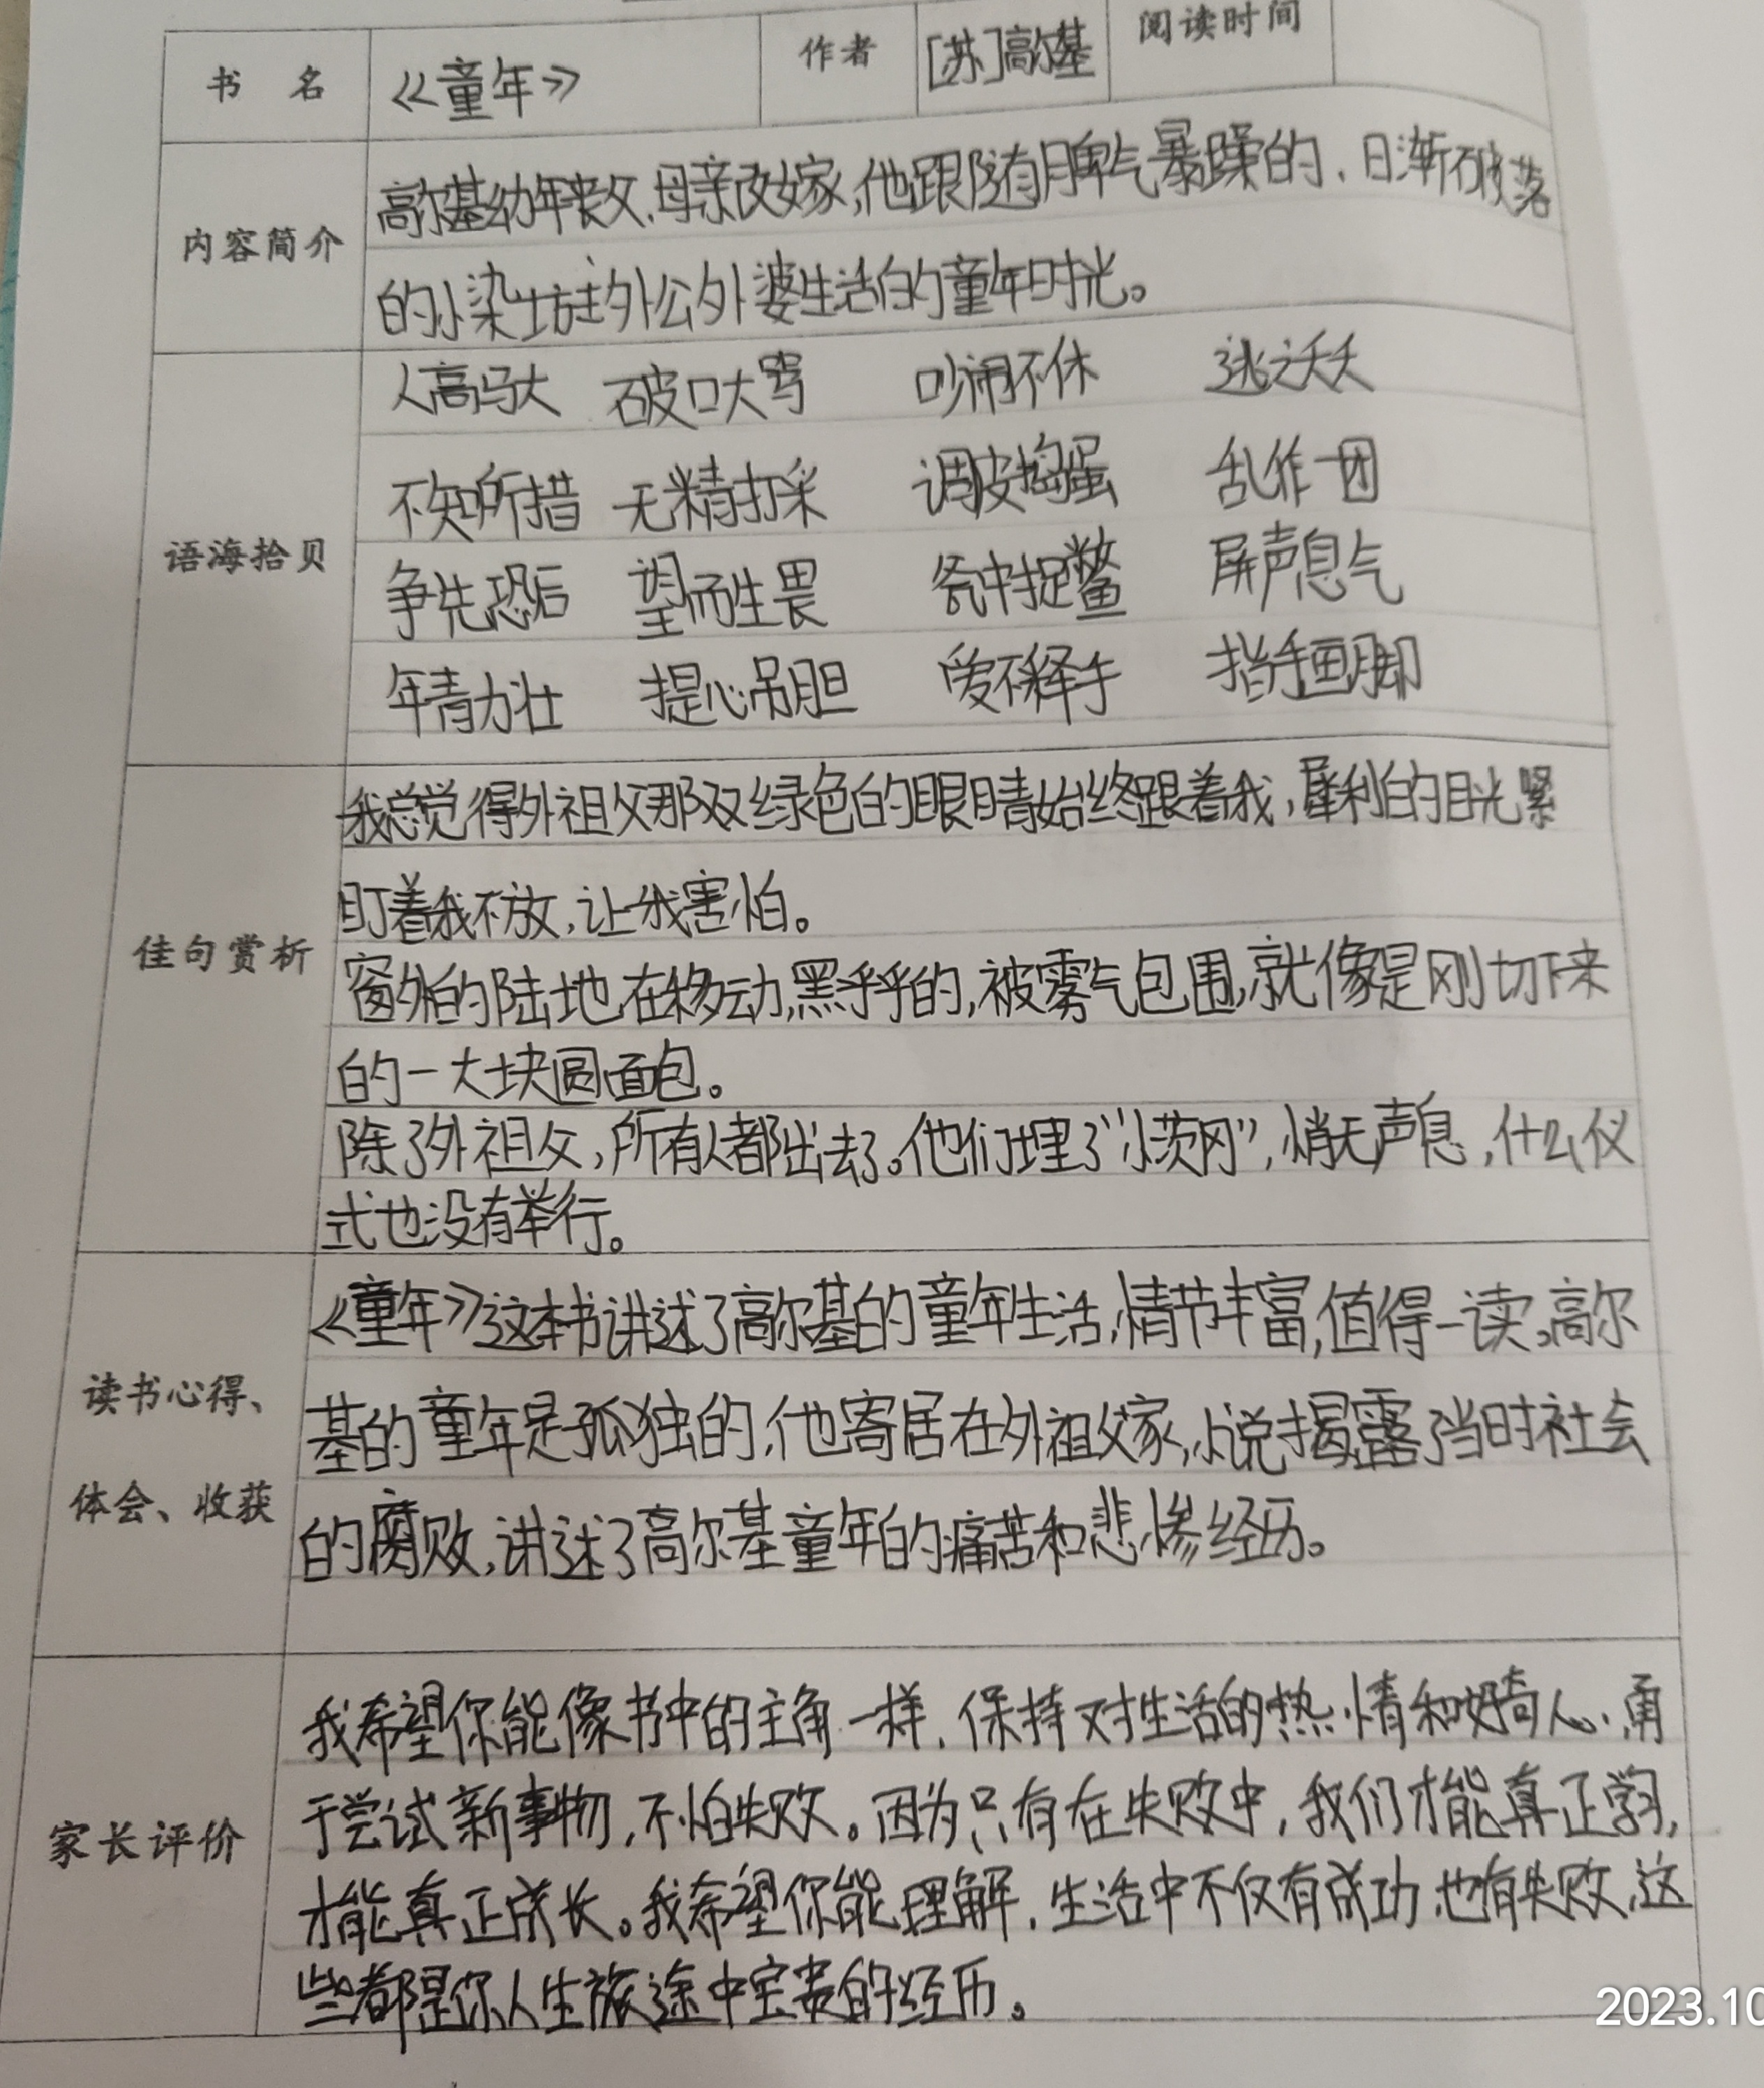 书 名 《童年》 作者 [苏]高尔基 阅读时间
内容简介
高尔基幼年丧父,母亲改嫁,他跟随有脾气暴躁的、日渐破落
的小染坊主外公外婆生活的童年时光。
语海拾贝
人高马大 破口大骂 吵闹不休 逃之夭夭
不知所措 无精打采 调皮捣蛋 乱作一团
争先恐后 望而生畏 瓮中捉鳖 屏声息气
年青力壮 提心吊胆 爱不释手 指手画脚
佳句赏析
我总觉得外祖父那双绿色的眼睛始终跟着我,犀利的目光紧
盯着我不放,让我害怕。
窗外的陆地在移动,黑乎乎的,被雾气包围,就像是刚切下来
的一大块圆面包。
除了外祖父,所有人都出去了。他们埋了“小茨冈”,悄无声息,什么仪
式也没有举行。
读书心得、
体会、收获
《童年》这本书讲述了高尔基的童年生活,情节丰富,值得一读。高尔
基的童年是孤独的,他寄居在外祖父家,小说揭露了当时社会
的腐败,讲述了高尔基童年的痛苦和悲惨经历。
家长评价
我希望你能像书中的主角一样,保持对生活的热情和好奇心,勇
于尝试新事物,不怕失败。因为只有在失败中,我们才能真正学习,
才能真正成长。我希望你能理解,生活中不仅有成功,也有失败,这
些都是你人生旅途中宝贵的经历。
2023.10